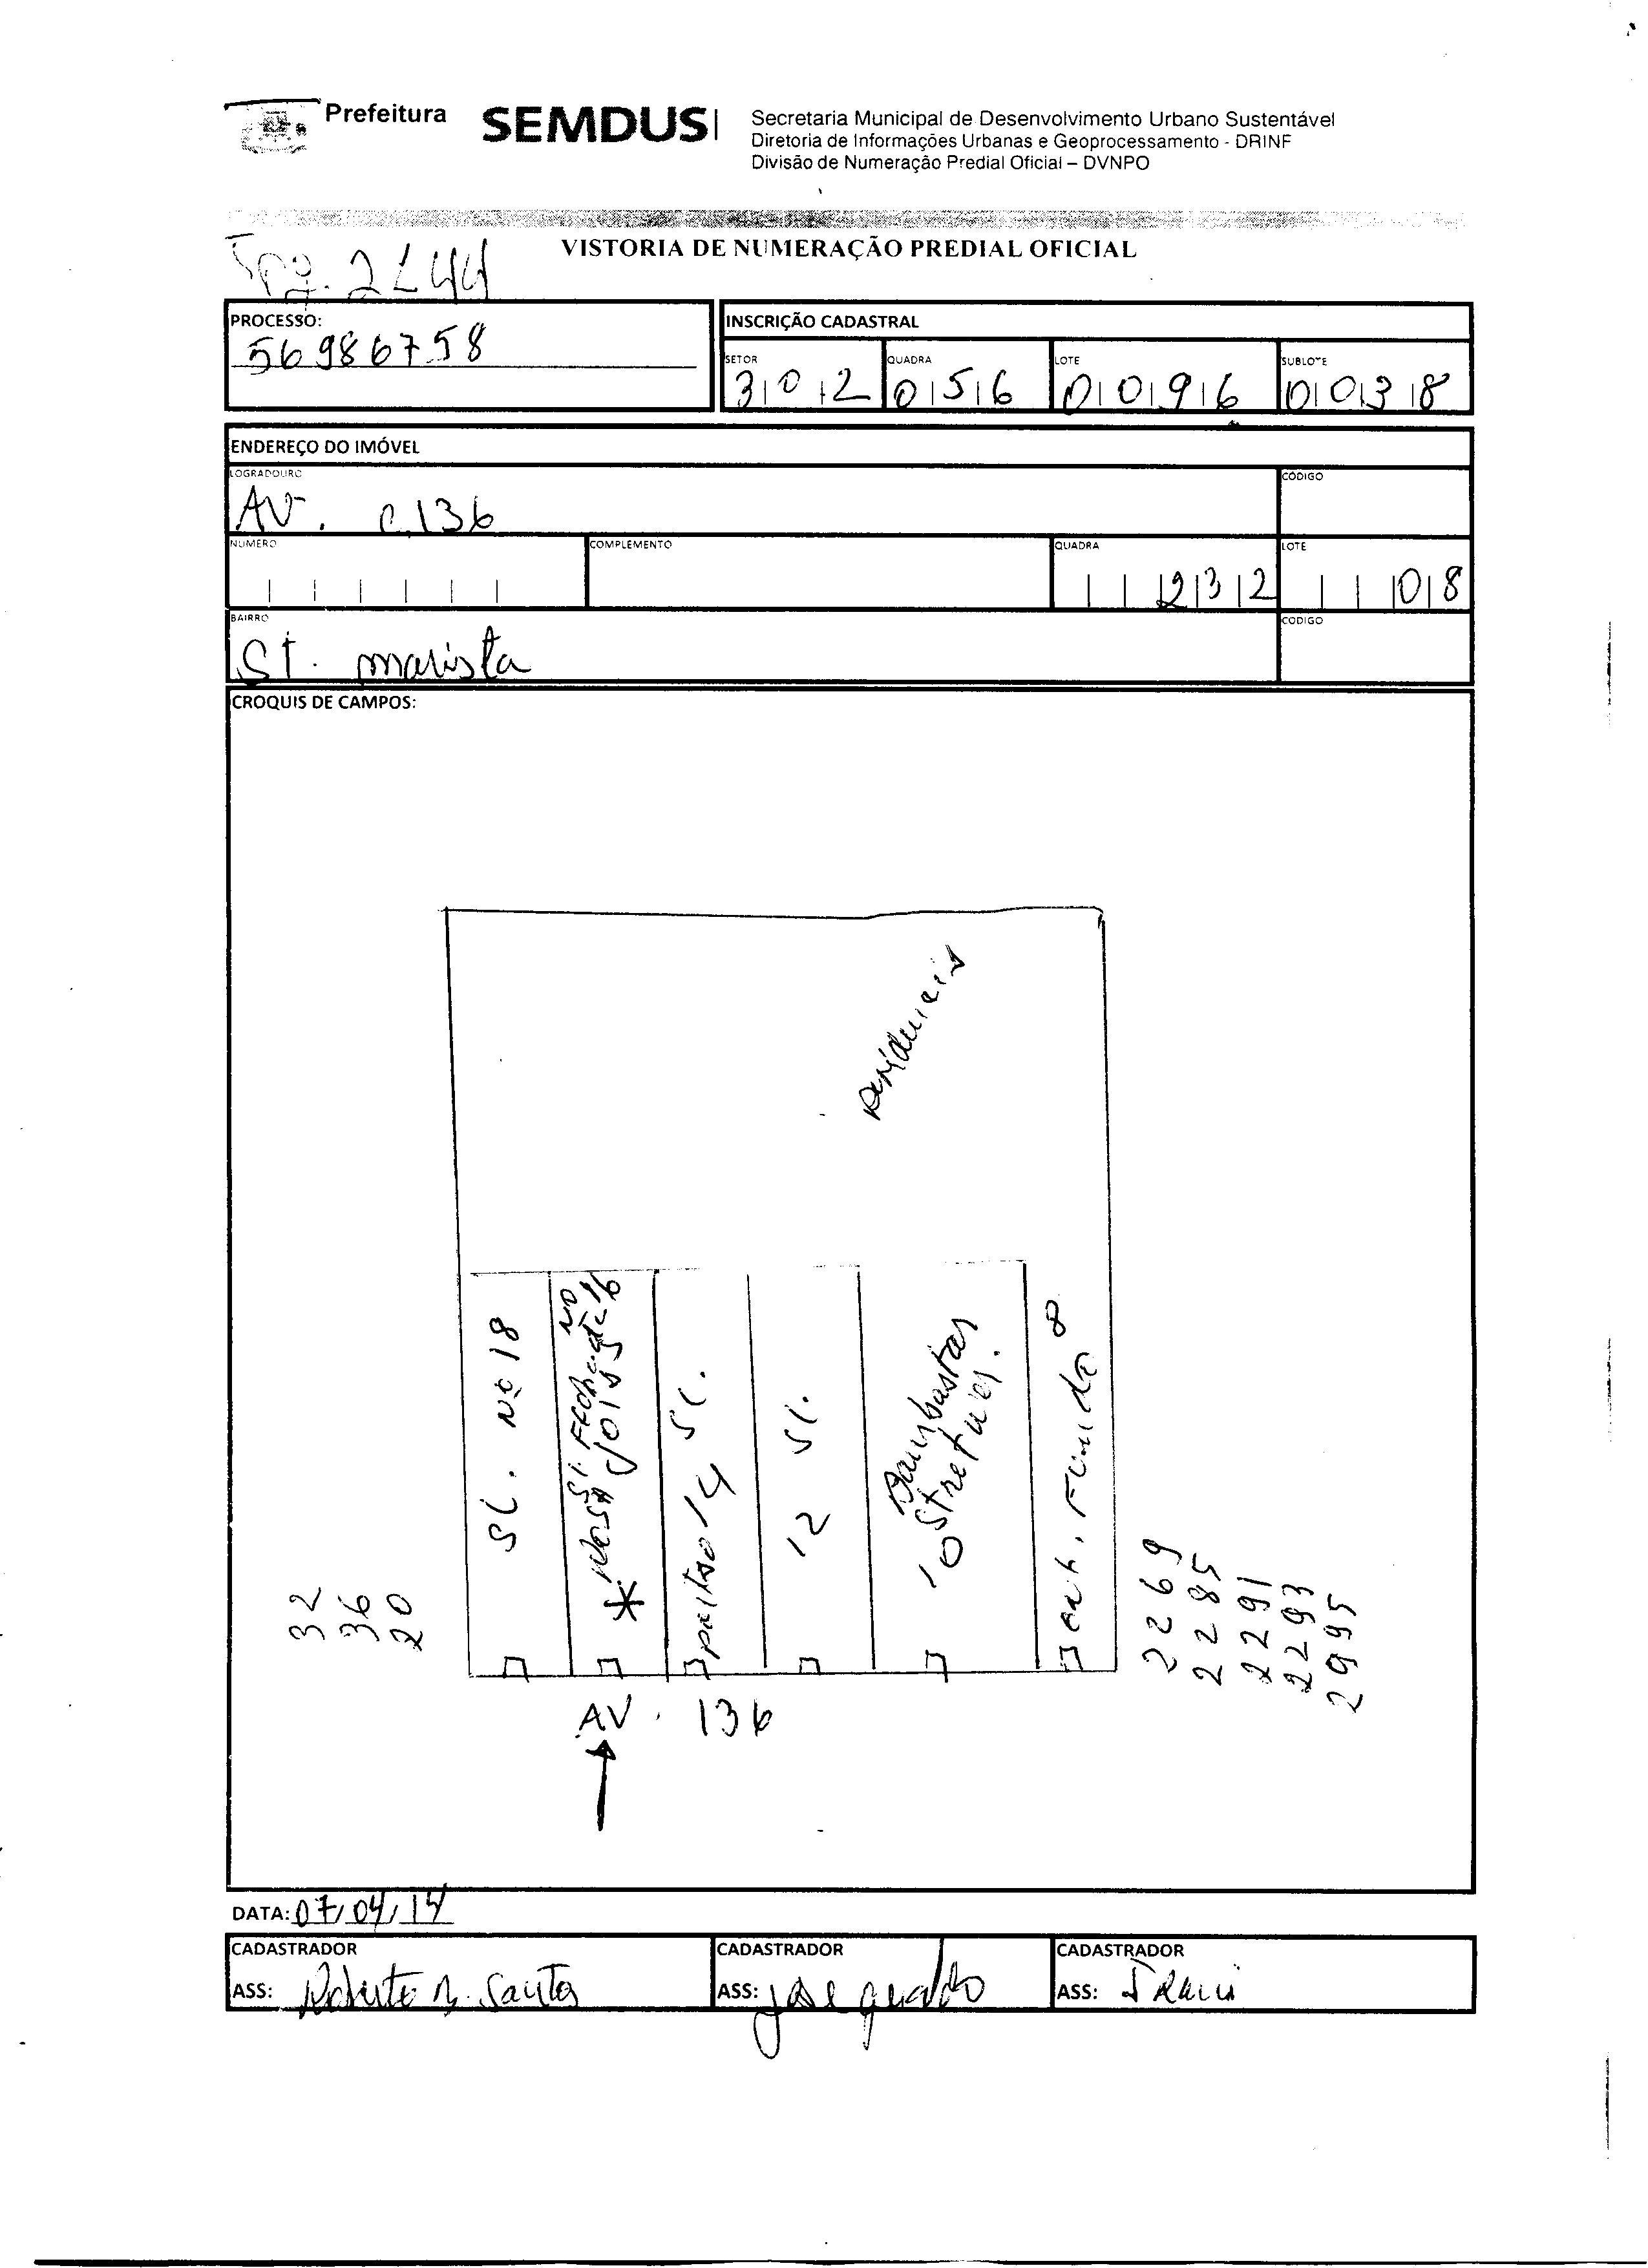 Prefeitura
SEMDUS
Secretaria Municipal de Desenvolvimento Urbano Sustentável
Diretoria de Informações Urbanas e Geoprocessamento - DRINF
Divisão de Numeração Predial Oficial – DVNPO
VISTORIA DE NUMERAÇÃO PREDIAL OFICIAL
PROCESSO:
56986758
INSCRIÇÃO CADASTRAL
SETOR QUADRA LOTE SUBLOTE
302 056 0096 0038
ENDEREÇO DO IMÓVEL
LOGRADOURO CÓDIGO
AV. C.136
NÚMERO COMPLEMENTO QUADRA LOTE
232 08
BAIRRO CODIGO
St. marista
CROQUIS DE CAMPOS:
SL. Nº 18
14 SL.
12 SL.
10
8
32
36
20
2269
2285
2291
2293
2995
AV. 136
DATA: 07/04/14
CADASTRADOR CADASTRADOR CADASTRADOR
ASS: Roberto Santos ASS: José ASS: